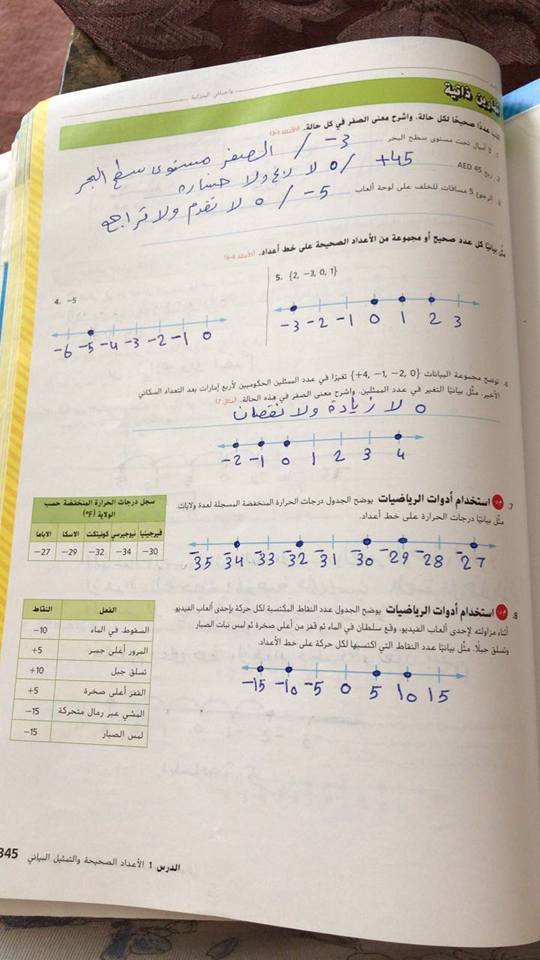 واجباتي المنزلية
تمارين ذاتية
اكتب عددًا صحيحًا لكل حالة. واشرح معنى الصفر في كل حالة.
أميال تحت مستوى سطح البحر
-3 / الصفر مستوى سطح البحر
2. ربح AED 45
+45 / 0 لا ربح ولا خسارة
3. الرجوع 5 مسافات للخلف على لوحة ألعاب
-5 / 0 لا تقدم ولا تراجع
مثّل بيانيًا كل عدد صحيح أو مجموعة من الأعداد الصحيحة على خط أعداد.
4. -5
-6 -5 -4 -3 -2 -1 0
5. {2, -3, 0, 1}
-3 -2 -1 0 1 2 3
6. توضح مجموعة البيانات {+4, -1, -2, 0} تغيرًا في عدد الممثلين الحكوميين لأربع إمارات بعد التعداد السكاني
الأخير. مثّل بيانيًا التغير في عدد الممثلين. واشرح معنى الصفر في هذه الحالة.
0 لا زيادة ولا نقصان
-2 -1 0 1 2 3 4
7. استخدام أدوات الرياضيات يوضح الجدول درجات الحرارة المنخفضة المسجلة لعدة ولايات.
مثّل بيانيًا درجات الحرارة على خط أعداد.
سجل درجات الحرارة المنخفضة حسب
الولاية (°F)
فيرجينيا نيوجيرسي كونيتكت ألاسكا ألاباما
-30 -34 -32 -29 -27
-35 -34 -33 -32 -31 -30 -29 -28 -27
8. استخدام أدوات الرياضيات يوضح الجدول عدد النقاط المكتسبة لكل حركة بإحدى ألعاب الفيديو.
أثناء مزاولته لإحدى ألعاب الفيديو، وقع سلطان في الماء ثم قفز من أعلى صخرة ثم لمس نبات الصبار
وتسلق جبلًا. مثّل بيانيًا عدد النقاط التي اكتسبها لكل حركة على خط الأعداد.
-15 -10 -5 0 5 10 15
الفعل النقاط
السقوط في الماء -10
المرور أعلى جسر +5
تسلق جبل +10
القفز أعلى صخرة +5
المشي عبر رمال متحركة -15
لمس الصبار -15
الدرس 1 الأعداد الصحيحة والتمثيل البياني 345